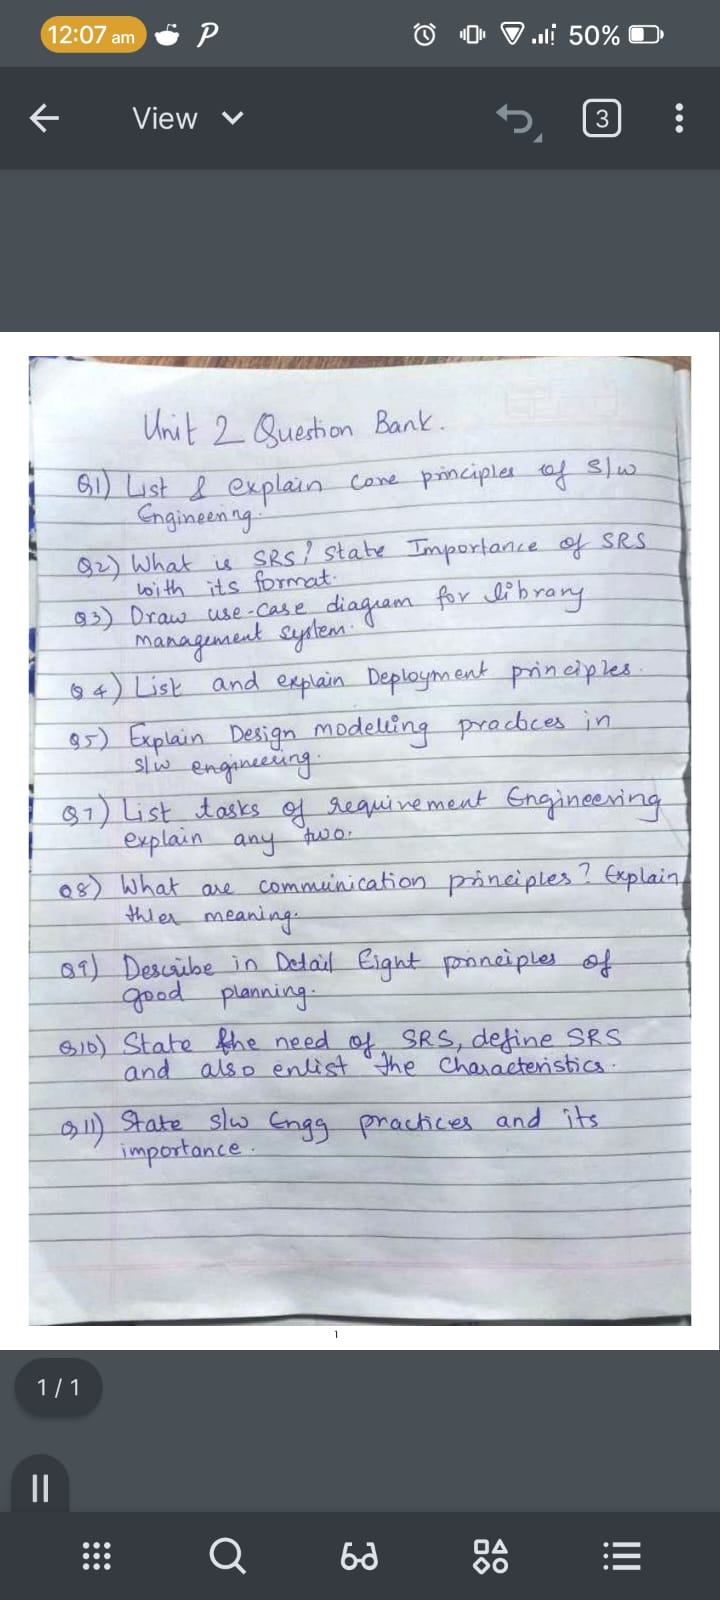 12:07 am
50%
View
3
Unit 2 Question Bank.
Q1) List & explain core principles of s/w
Engineering.
Q2) What is SRS? State Importance of SRS
with its format.
Q3) Draw use-case diagram for library
management system.
Q4) List and explain Deployment principles.
Q5) Explain Design modelling practices in
s/w engineering.
Q7) List tasks of requirement Engineering
explain any two.
Q8) What are communication principles? Explain
thier meaning.
Q9) Describe in Detail Eight principles of
good planning.
Q10) State the need of SRS, define SRS
and also enlist the characteristics.
Q11) State s/w Engg practices and its
importance.
1
1 / 1